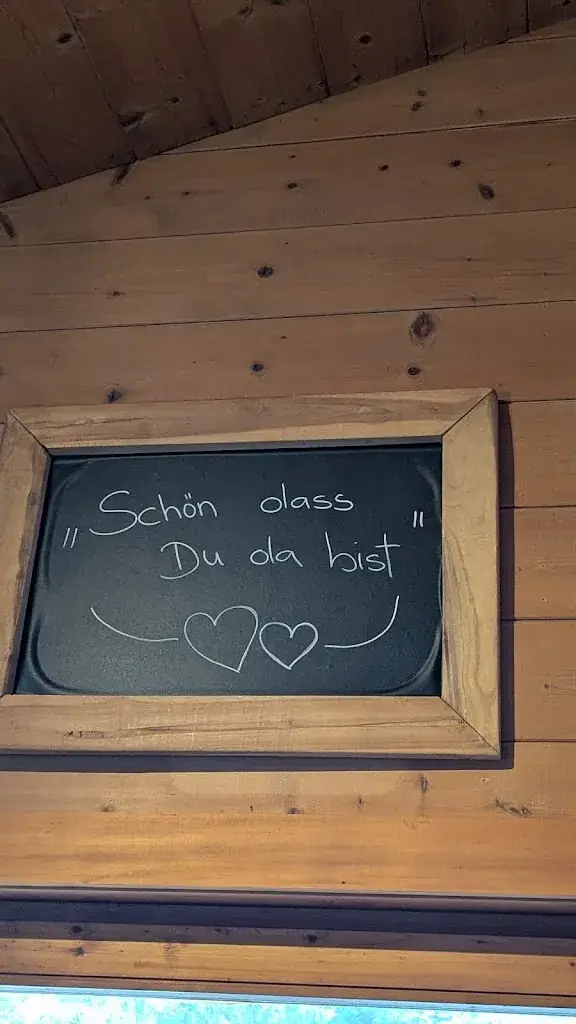 „Schön dass
Du da bist"